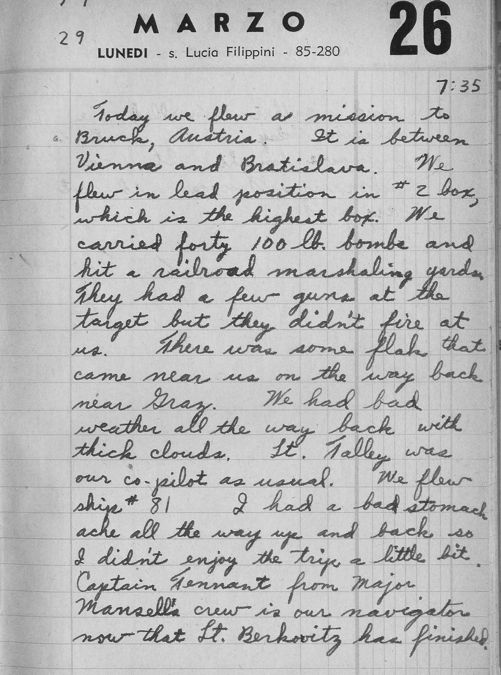 29
MARZO
26
LUNEDI - s. Lucia Filippini - 85-280
7:35
Today we flew a mission to
Bruck, Austria. It is between
Vienna and Bratislava. We
flew in lead position in #2 box,
which is the highest box. We
carried forty 100 lb. bombs and
hit a railroad marshaling yards
They had a few guns at the
target but they didn't fire at
us. There was some flak that
came near us on the way back
near Graz. We had bad
weather all the way back with
thick clouds. Lt. Talley was
our co-pilot as usual. We flew
ship #81 I had a bad stomach
ache all the way up and back so
I didn't enjoy the trip a little bit.
Captain Tennant from Major
Mansell's crew is our navigator
now that Lt. Berkovitz has finished.